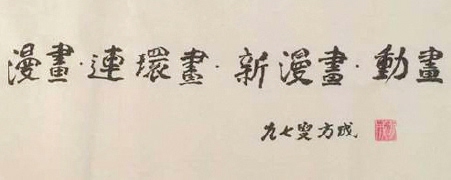 漫畫·連環畫·新漫畫·動畫
九七叟方成